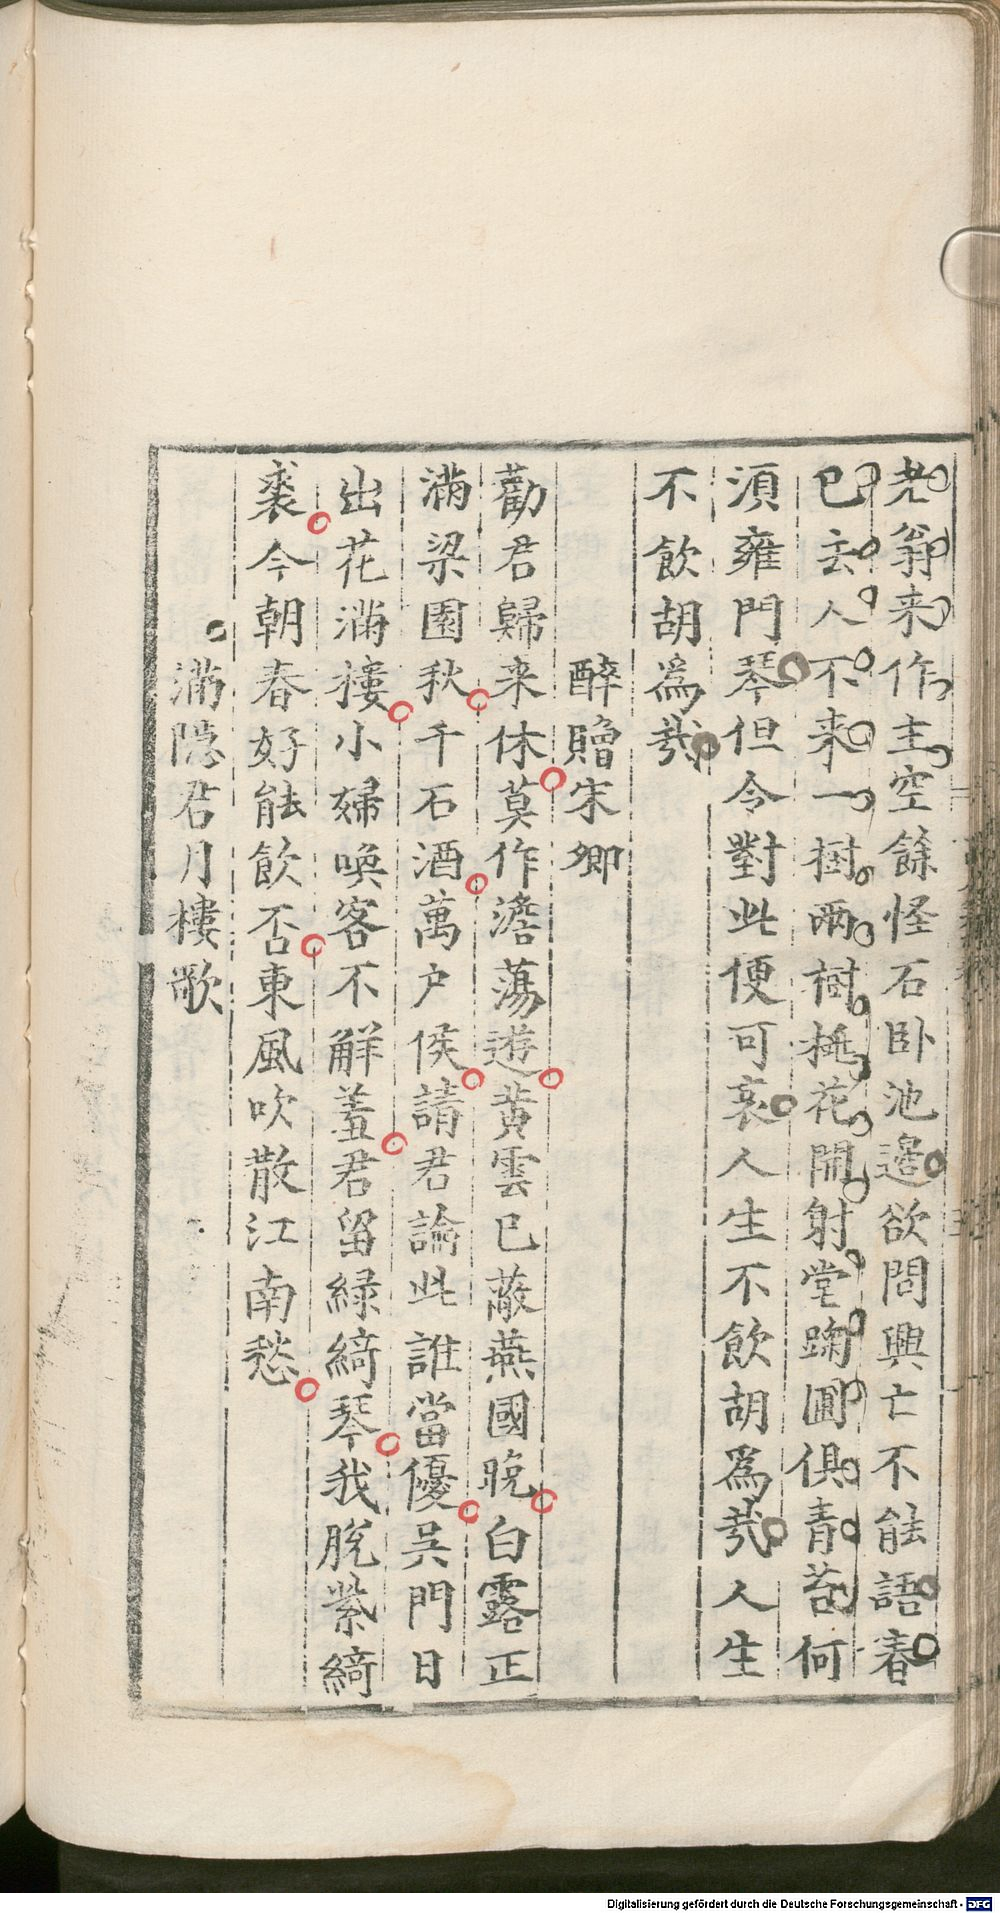 老翁来作主空餘怪石卧池邉欲問興亡不能語春
已去人不来一樹兩樹桃花開射堂踘圃俱青苔何
須雍門琴但令對此便可哀人生不飲胡爲哉人生
不飲胡爲哉
醉贈宋卿
勸君歸来休莫作澹蕩遊黄雲已蔽燕國晚白露正
滿梁園秋千石酒萬户侯請君論此誰當優吴門日
出花滿樓小婦喚客不解羞君留緑綺琴我脫紫綺
裘今朝春好能飲否東風吹散江南愁
滿隠君月樓歌
Digitalisierung gefördert durch die Deutsche Forschungsgemeinschaft - DFG